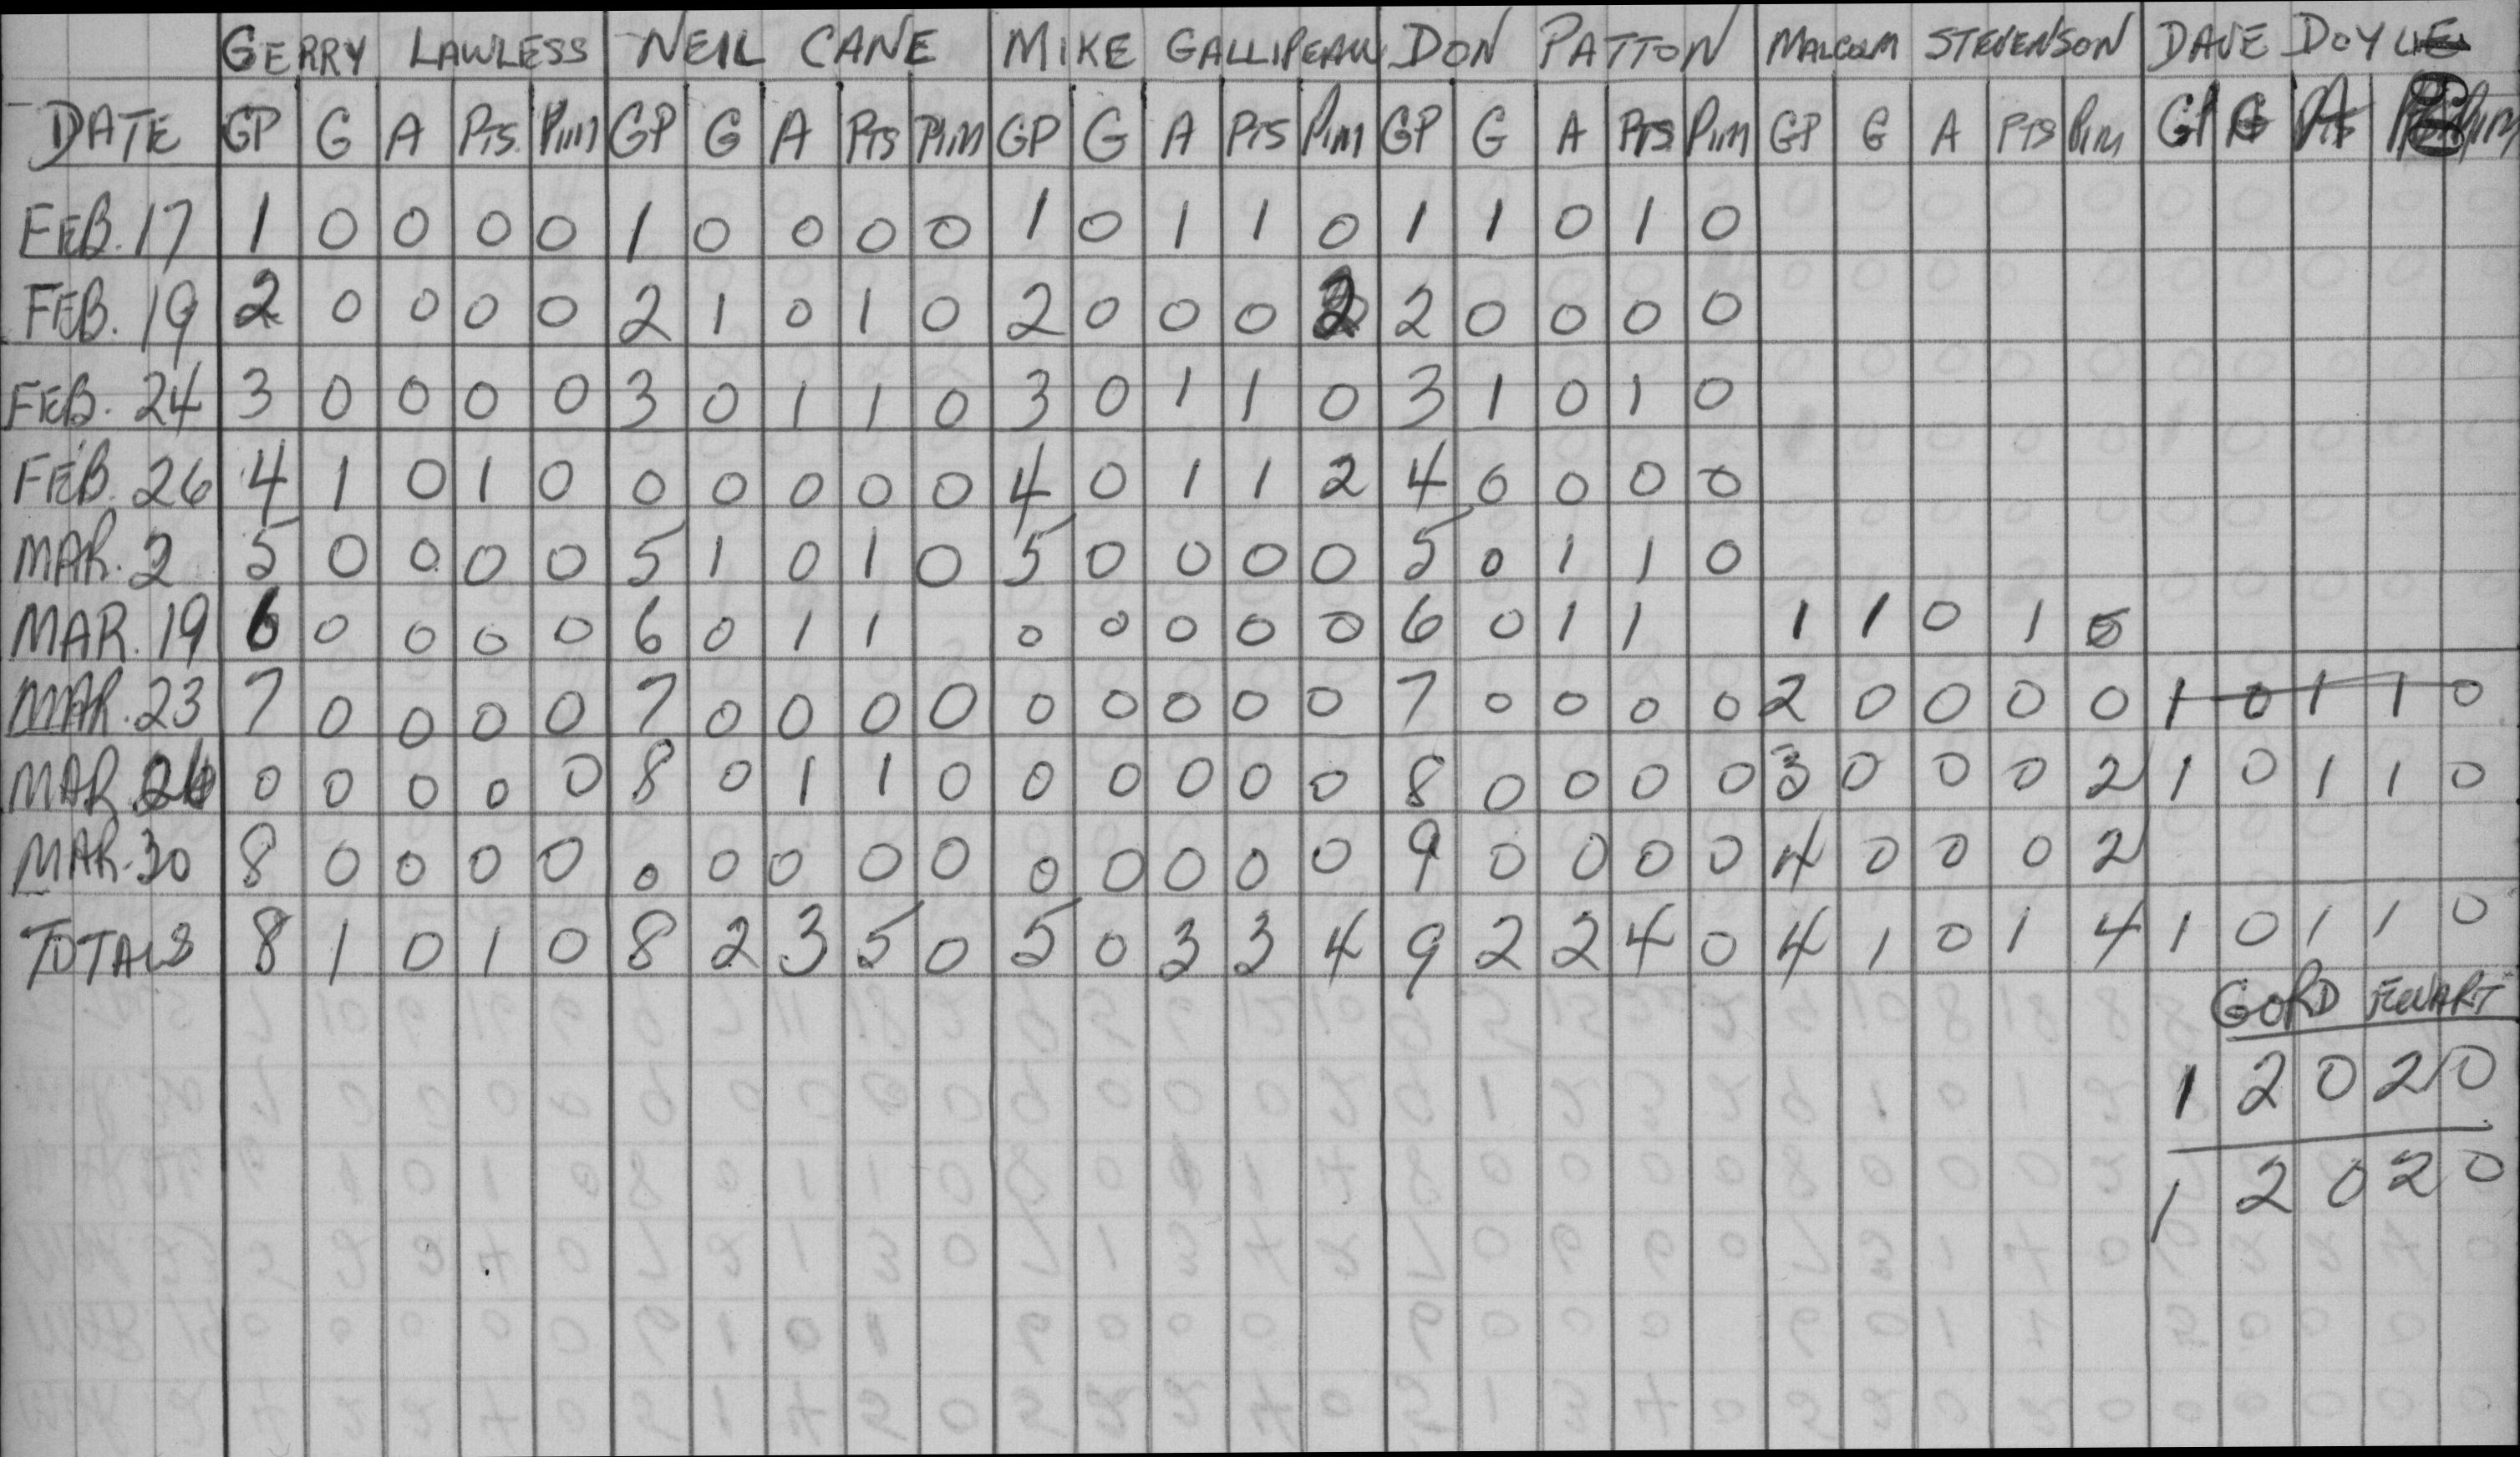 GERRY LAWLESS NEIL CANE MIKE GALLIPEAU DON PATTON MALCOLM STEVENSON DAVE DOYLE
DATE GP G A PTS PIM GP G A PTS PIM GP G A PTS PIM GP G A PTS PIM GP G A PTS PIM GP G A PIM
FEB. 17 1 0 0 0 0 1 0 0 0 0 1 0 1 1 0 1 1 0 1 0
FEB. 19 2 0 0 0 0 2 1 0 1 0 2 0 0 0 2 2 0 0 0 0
FEB. 24 3 0 0 0 0 3 0 1 1 0 3 0 1 1 0 3 1 0 1 0
FEB. 26 4 1 0 1 0 0 0 0 0 0 4 0 1 1 2 4 0 0 0 0
MAR. 2 5 0 0 0 0 5 1 0 1 0 5 0 0 0 0 5 0 1 1 0
MAR. 19 6 0 0 0 0 6 0 1 1 0 0 0 0 0 6 0 1 1 1 1 0 1
MAR. 23 7 0 0 0 0 7 0 0 0 0 0 0 0 0 0 7 0 0 0 0 2 0 0 0 0 1 0 1 1 0
MAR. 26 0 0 0 0 0 8 0 1 1 0 0 0 0 0 0 8 0 0 0 0 3 0 0 0 2 1 0 1 1 0
MAR. 30 8 0 0 0 0 0 0 0 0 0 0 0 0 0 0 9 0 0 0 0 4 0 0 0 2
TOTALS 8 1 0 1 0 8 2 3 5 0 5 0 3 3 4 9 2 2 4 0 4 1 0 1 4 1 0 1 1 0
GORD
1 2 0 2 0
1 2 0 2 0